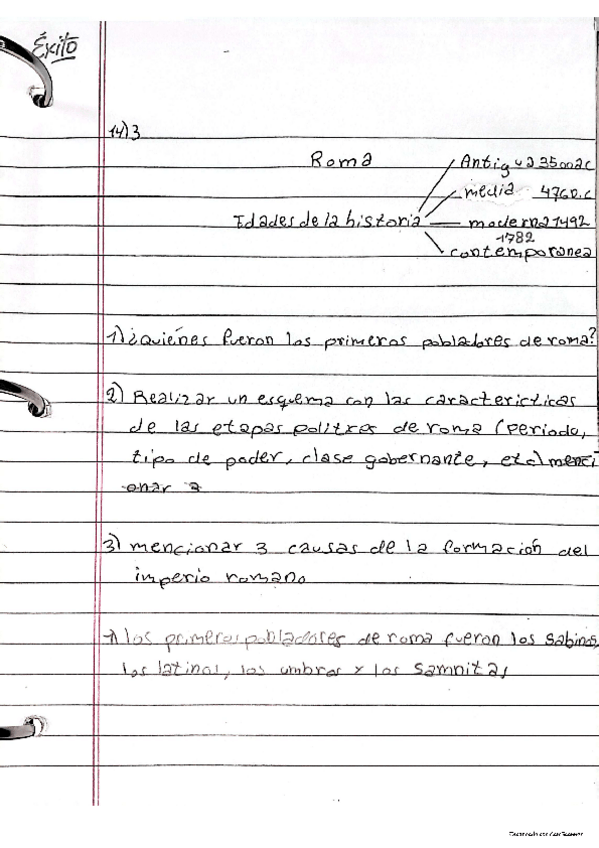 Éxito
14)3
Roma
Antigua 3500ac
media 476D.c
Edades de la historia
moderna 1492
1782
contemporanea
1) ¿Quiénes fueron los primeros pobladores de roma?
2) Realizar un esquema con las caractericticas
de las etapas politicas de roma (periodo,
tipo de poder, clase gobernante, etc) menci
onar 3
3) mencionar 3 causas de la formación del
imperio romano
1) los primeros pobladores de roma fueron los sabinos,
los latinos, los umbros y los samnitas